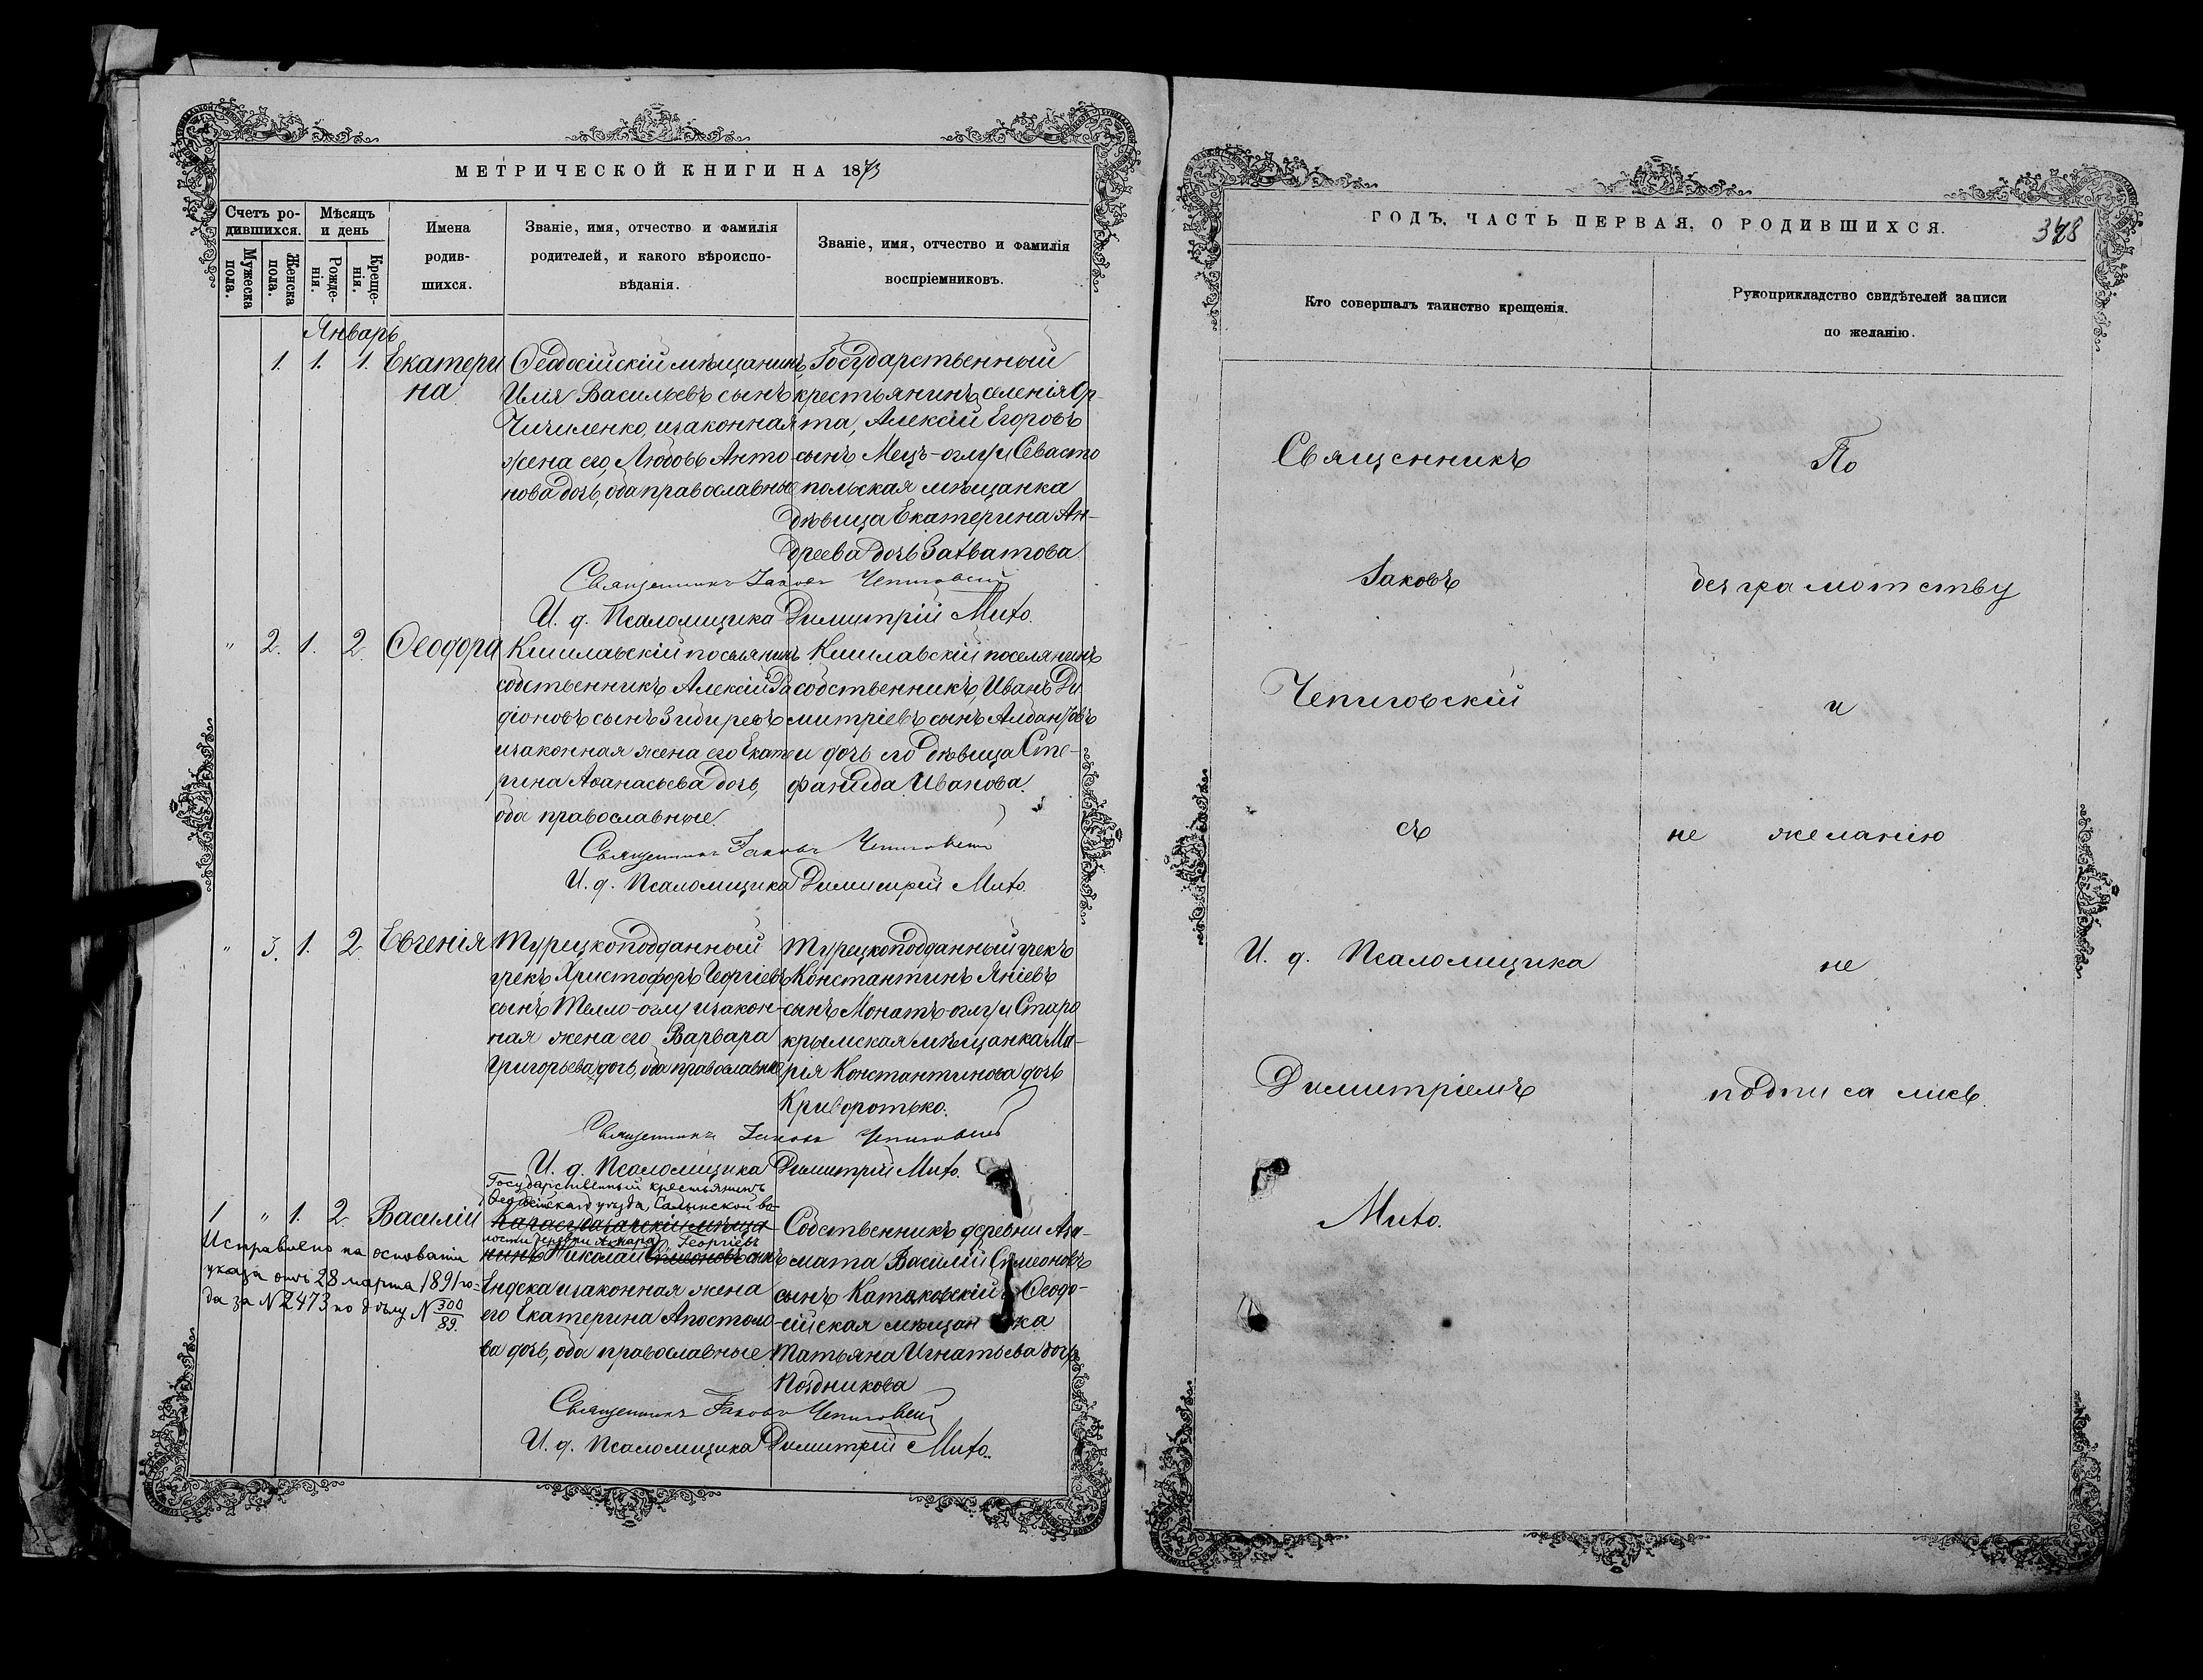 МЕТРИЧЕСКОЙ КНИГИ НА 1873
Счетъ ро-
дившихся.
Мужеска
пола.
Женска
пола.
Мѣсяцъ
и день
Рожде-
нія.
Креще-
нія.
Имена
родив-
шихся.
Званіе, имя, отчество и фамилія
родителей, и какого вѣроиспо-
вѣданія.
Званіе, имя, отчество и фамилія
воспріемниковъ.
Январь
1. 1. 1. Екатери
на
Ѳеодосійскій мѣщанинъ
Илія Васильевъ сынъ
Чичиленко, и законная
жена его, Любовь Анто
нова дочь, оба православные
Государственный
крестьянинъ селенія Ор-
та, Алексій Егоровъ
сынъ Мецъ-оглу и Севасто
польская мѣщанка
дѣвица Екатерина Ан-
дреева дочь Захватова.
Священникъ Іаковъ Чепиговскій
И. д. Псаломщика Димитрій Мито.
" 2. 1. 2. Ѳеодора
Кишлавскій поселянинъ
собственникъ Алексій Ра
діоновъ сынъ Зибировъ
и законная жена его Екате
рина Аѳанасьева дочь,
оба православные.
Кишлавскій поселянинъ
собственникъ, Иванъ Ди
митріевъ сынъ
и дочь его дѣвица Сте-
фанида Иванова.
Священникъ Іаковъ Чепиговскій
И. д. Псаломщика Димитрій Мито.
" 3. 1. 2. Евгенія
Турецкоподданный
грекъ Христофоръ Георгіевъ
сынъ Телло-оглу и закон-
ная жена его Варвара
Григорьева дочь, оба православные
Турецкоподданный грекъ
Константинъ Яніевъ
сынъ Монатъ-оглу и Старо
крымская мѣщанка Ма-
рія Константинова дочь
Криворотько.
Священникъ Іаковъ Чепиговскій
И. д. Псаломщика Димитрій Мито.
1 " 1. 2. Василій
Исправлено на основаніи
указа отъ 28 марта 1891 го-
да за № 2473 по дѣлу № 300/89.
Государственный крестьянинъ
Ѳеодосійскаго уѣзда, Салынской во-
лости деревни Георгіевъ
Николай Симеоновъ сынъ
Ендека и законная жена
его Екатерина Апостоло-
ва дочь, оба православные
Собственникъ деревни Аза-
мата Василій Симеоновъ
сынъ Катаковскій и Ѳеодо-
сійская мѣщанка
Татьяна Игнатьева дочь
Поздникова
Священникъ Іаковъ Чепиговскій
И. д. Псаломщика Димитрій Мито.
ГОДЪ, ЧАСТЬ ПЕРВАЯ, О РОДИВШИХСЯ.
378
Кто совершалъ таинство крещенія.
Рукоприкладство свидѣтелей записи
по желанію.
Священникъ
Іаковъ
Чепиговскій
съ
И. д. Псаломщика
Димитріемъ
Мито.
По
безграмотству
и
не желанію
не
подписались.